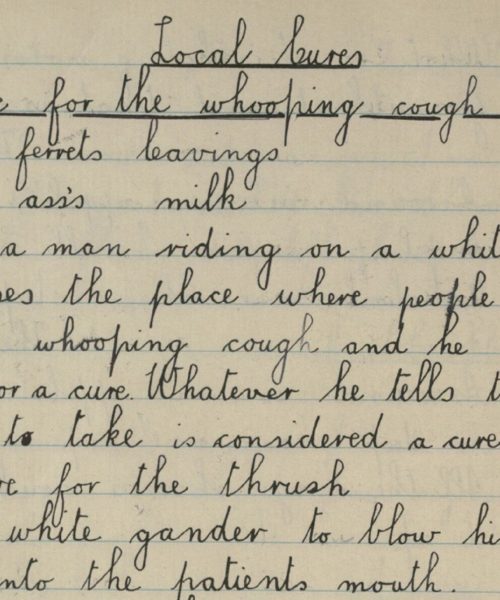 Local Cures
for the whooping cough
ferrets leavings
ass's milk
a man riding on a whit
es the place where people
whooping cough and he
or a cure. Whatever he tells t
to take is considered a cure
re for the thrush
white gander to blow hi
nto the patients mouth.